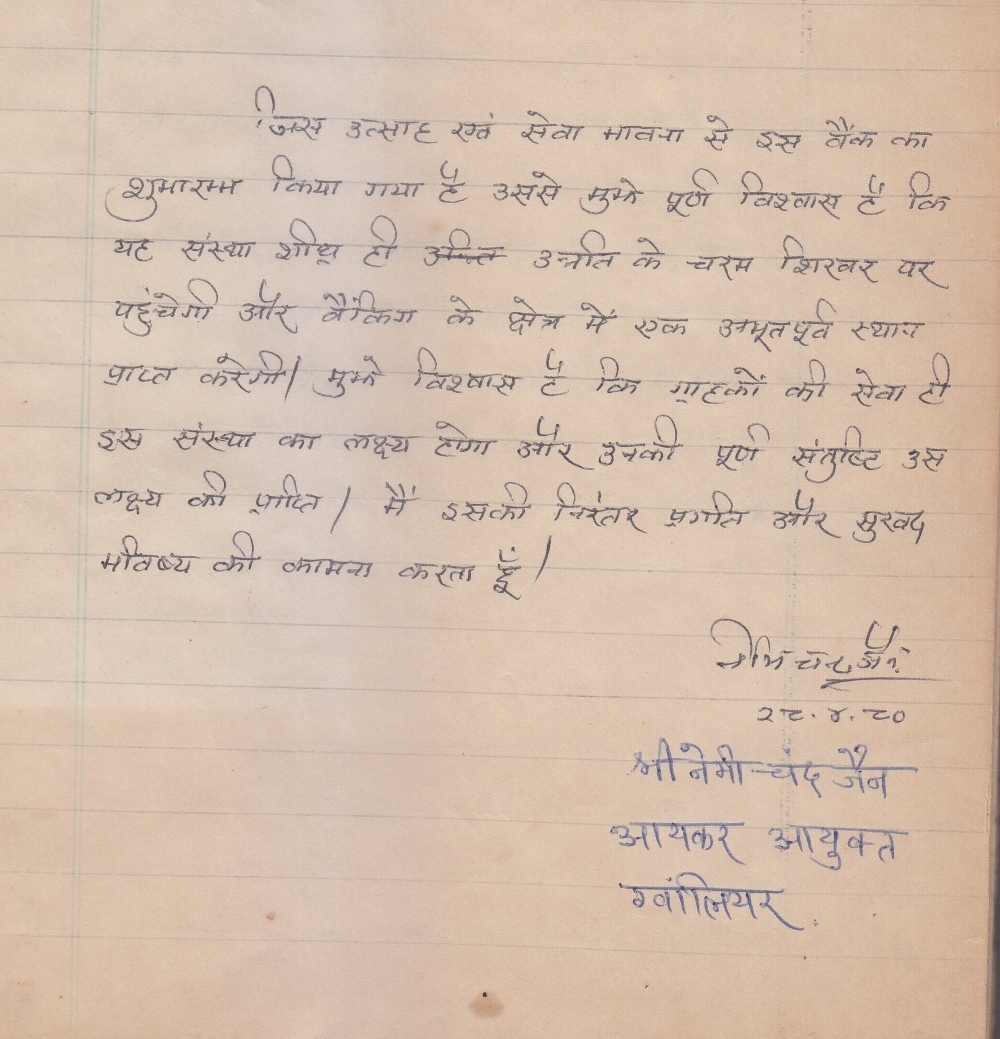 जिस उत्साह एवं सेवा भावना से इस बैंक का
शुभारम्भ किया गया है उससे मुझे पूर्ण विश्वास है कि
यह संस्था शीघ्र ही उन्नति के चरम शिखर पर
पहुंचेगी और बैंकिंग के क्षेत्र में एक अभूतपूर्व स्थान
प्राप्त करेगी। मुझे विश्वास है कि ग्राहकों की सेवा ही
इस संस्था का लक्ष्य होगा और उनकी पूर्ण संतुष्टि उस
लक्ष्य की प्राप्ति। मैं इसकी निरंतर प्रगति और सुखद
भविष्य की कामना करता हूँ।
नेमि चन्द जैन
२८.४.८०
श्री नेमी चंद जैन
आयकर आयुक्त
ग्वालियर.